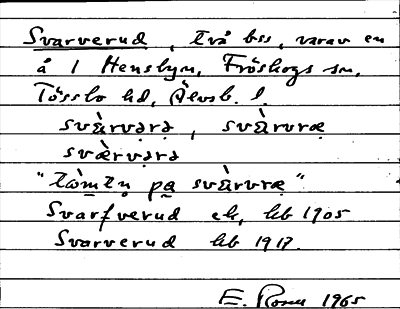 Svarverud, två bss, varav en
å 1 Hensbyn, Fröskogs sn,
Tössbo hd, Älvsb. l.
svä̀rvərə, svä̀rvræ
svæ̀rvərə
"tòmtn̥ pa svä̀rvræ"
Svarfverud ek, kb 1905
Svarverud kb 1917.
E. 1965